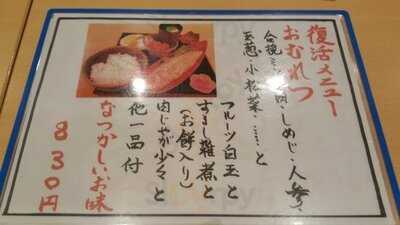 復活メニュー
おむれつ
合挽ミ 肉・しめじ・人参、
玉葱・小松菜・……と
フルーツ白玉と
すまし雑煮と
(お餅入り)
肉じゃが少々と
他一品付
なつかしいお味
830円